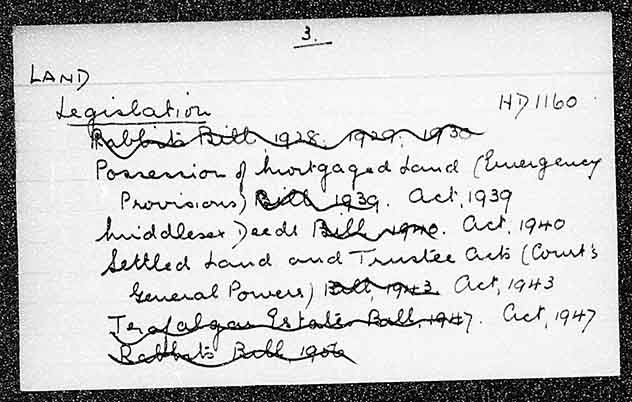 3.
LAND
Legislation HD1160
Rabbits Bill, 1928. 1929. 1930
Possession of Mortgaged Land (Emergency
Provisions) Bill, 1939. Act, 1939
Middlesex Deeds Bill, 1940. Act, 1940
Settled Land and Trustee Acts (Court's
General Powers) Bill, 1943. Act, 1943
Trafalgar Estates Bill, 1947. Act, 1947
Rabbits Bill,